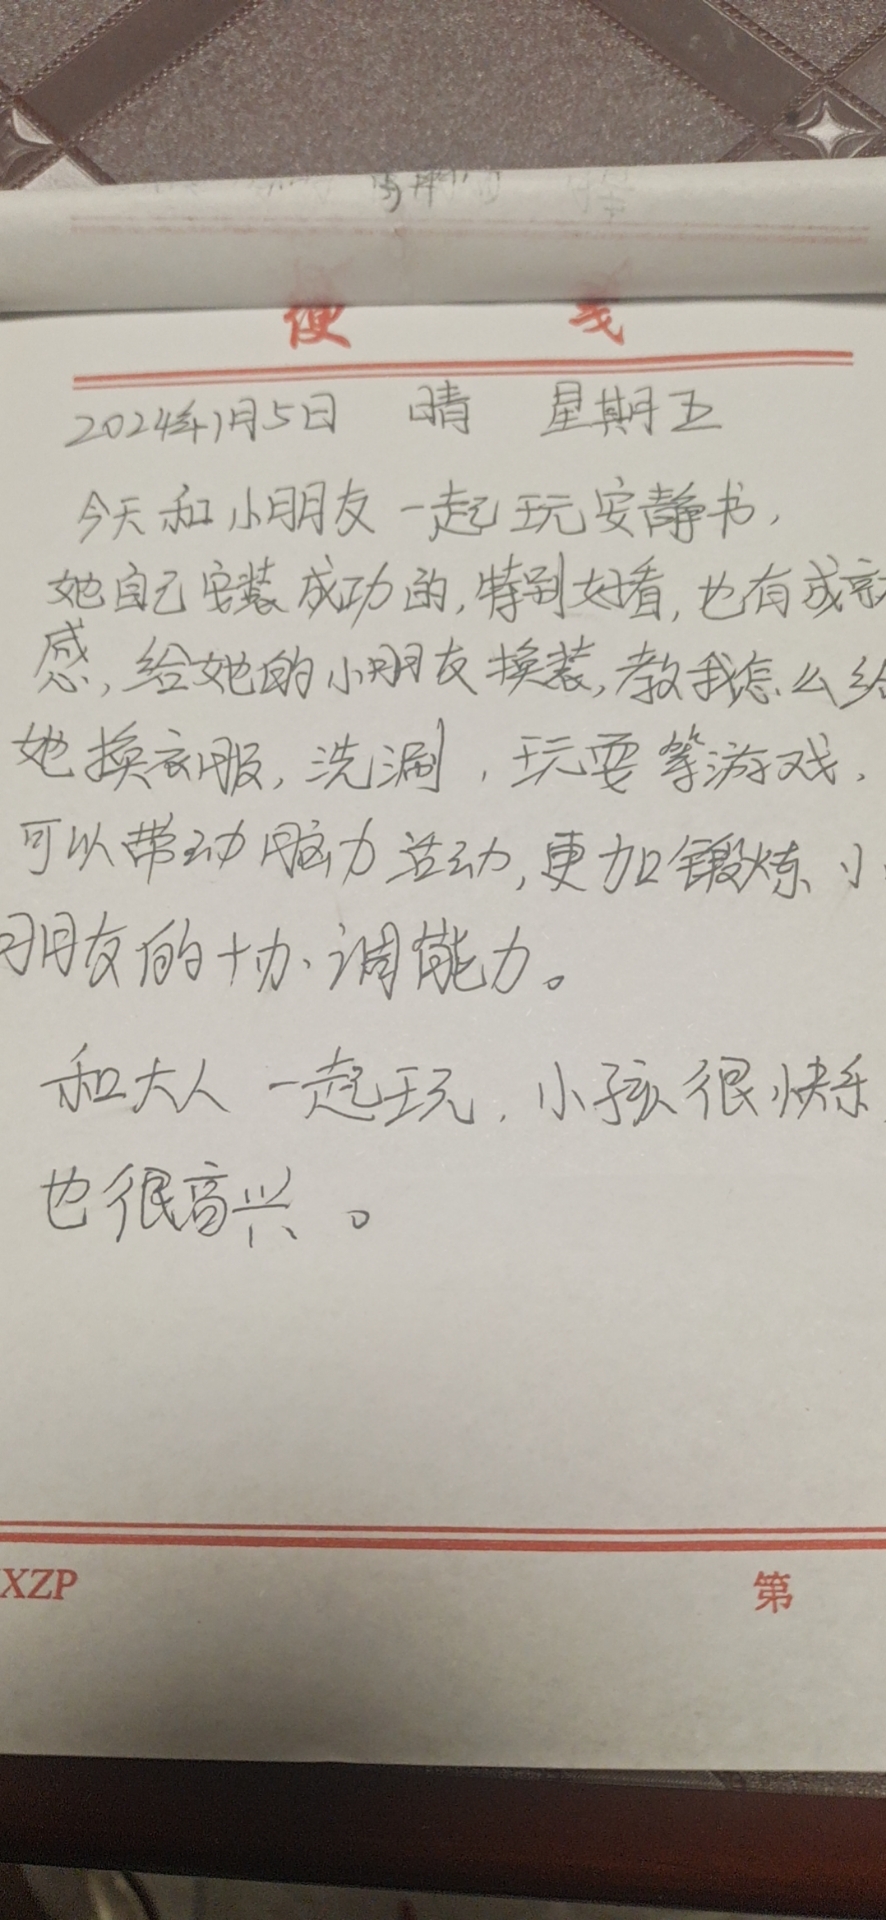 便 笺
2024年1月5日 晴 星期五
今天和小朋友一起玩安静书,
她自己安装成功的,特别好看,也有成就
感,给她的小朋友换装,教我怎么给
她换衣服,洗漱,玩耍等游戏,
可以带动脑力活动,更加锻炼小
朋友的协调能力。
和大人一起玩,小孩很快乐,
也很高兴。
XZP 第